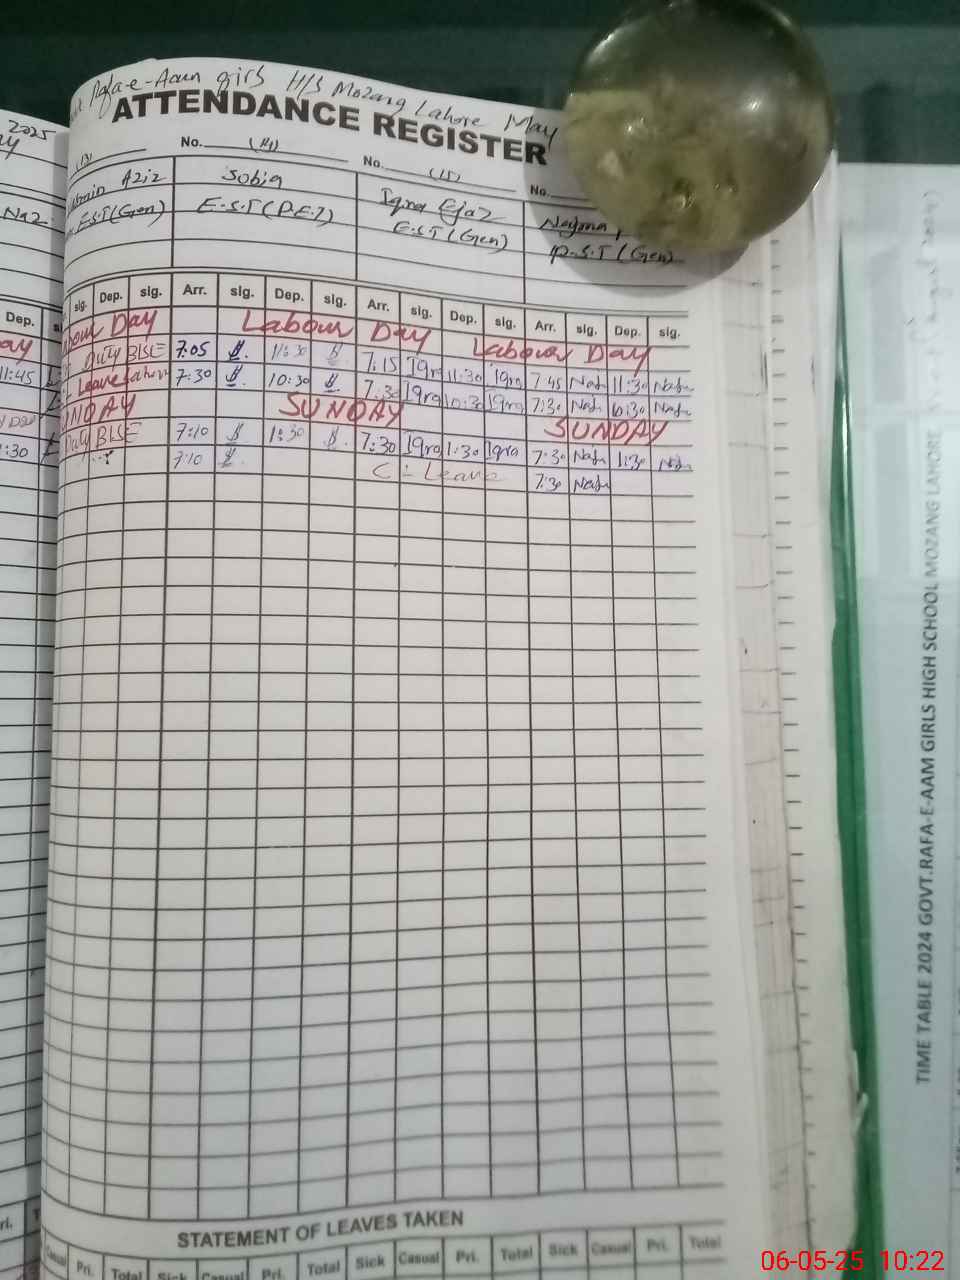 Rafa-e-Aam girls H/S Mozang Lahore May
ATTENDANCE REGISTER
2025
(13) No. (14) No. (15) No.
Aziz Sobia Iqra Ejaz Najma
Naz E.S.T (Gen) E.S.T (P.E.T) E.S.T (Gen) P.S.T (Gen)
Dep. sig. Dep. sig. Arr. sig. Dep. sig. Arr. sig. Dep. sig. Arr. sig. Dep. sig.
Labour Day Labour Day Labour Day
Duty BISE 7:05 11:30 7:15 Iqra 11:30 Iqra 7:45 11:30
11:45 Leave 7:30 10:30 7:30 Iqra 10:30 Iqra 7:30 10:30
SUNDAY SUNDAY SUNDAY
1:30 Duty BISE 7:10 1:30 7:30 Iqra 1:30 Iqra 7:30 1:30
7:10 C - Leave 7:30
STATEMENT OF LEAVES TAKEN
Casual Pri. Total Sick Casual Pri. Total Sick Casual Pri. Total Sick Casual Pri. Total
TIME TABLE 2024 GOVT.RAFA-E-AAM GIRLS HIGH SCHOOL MOZANG LAHORE
06-05-25 10:22